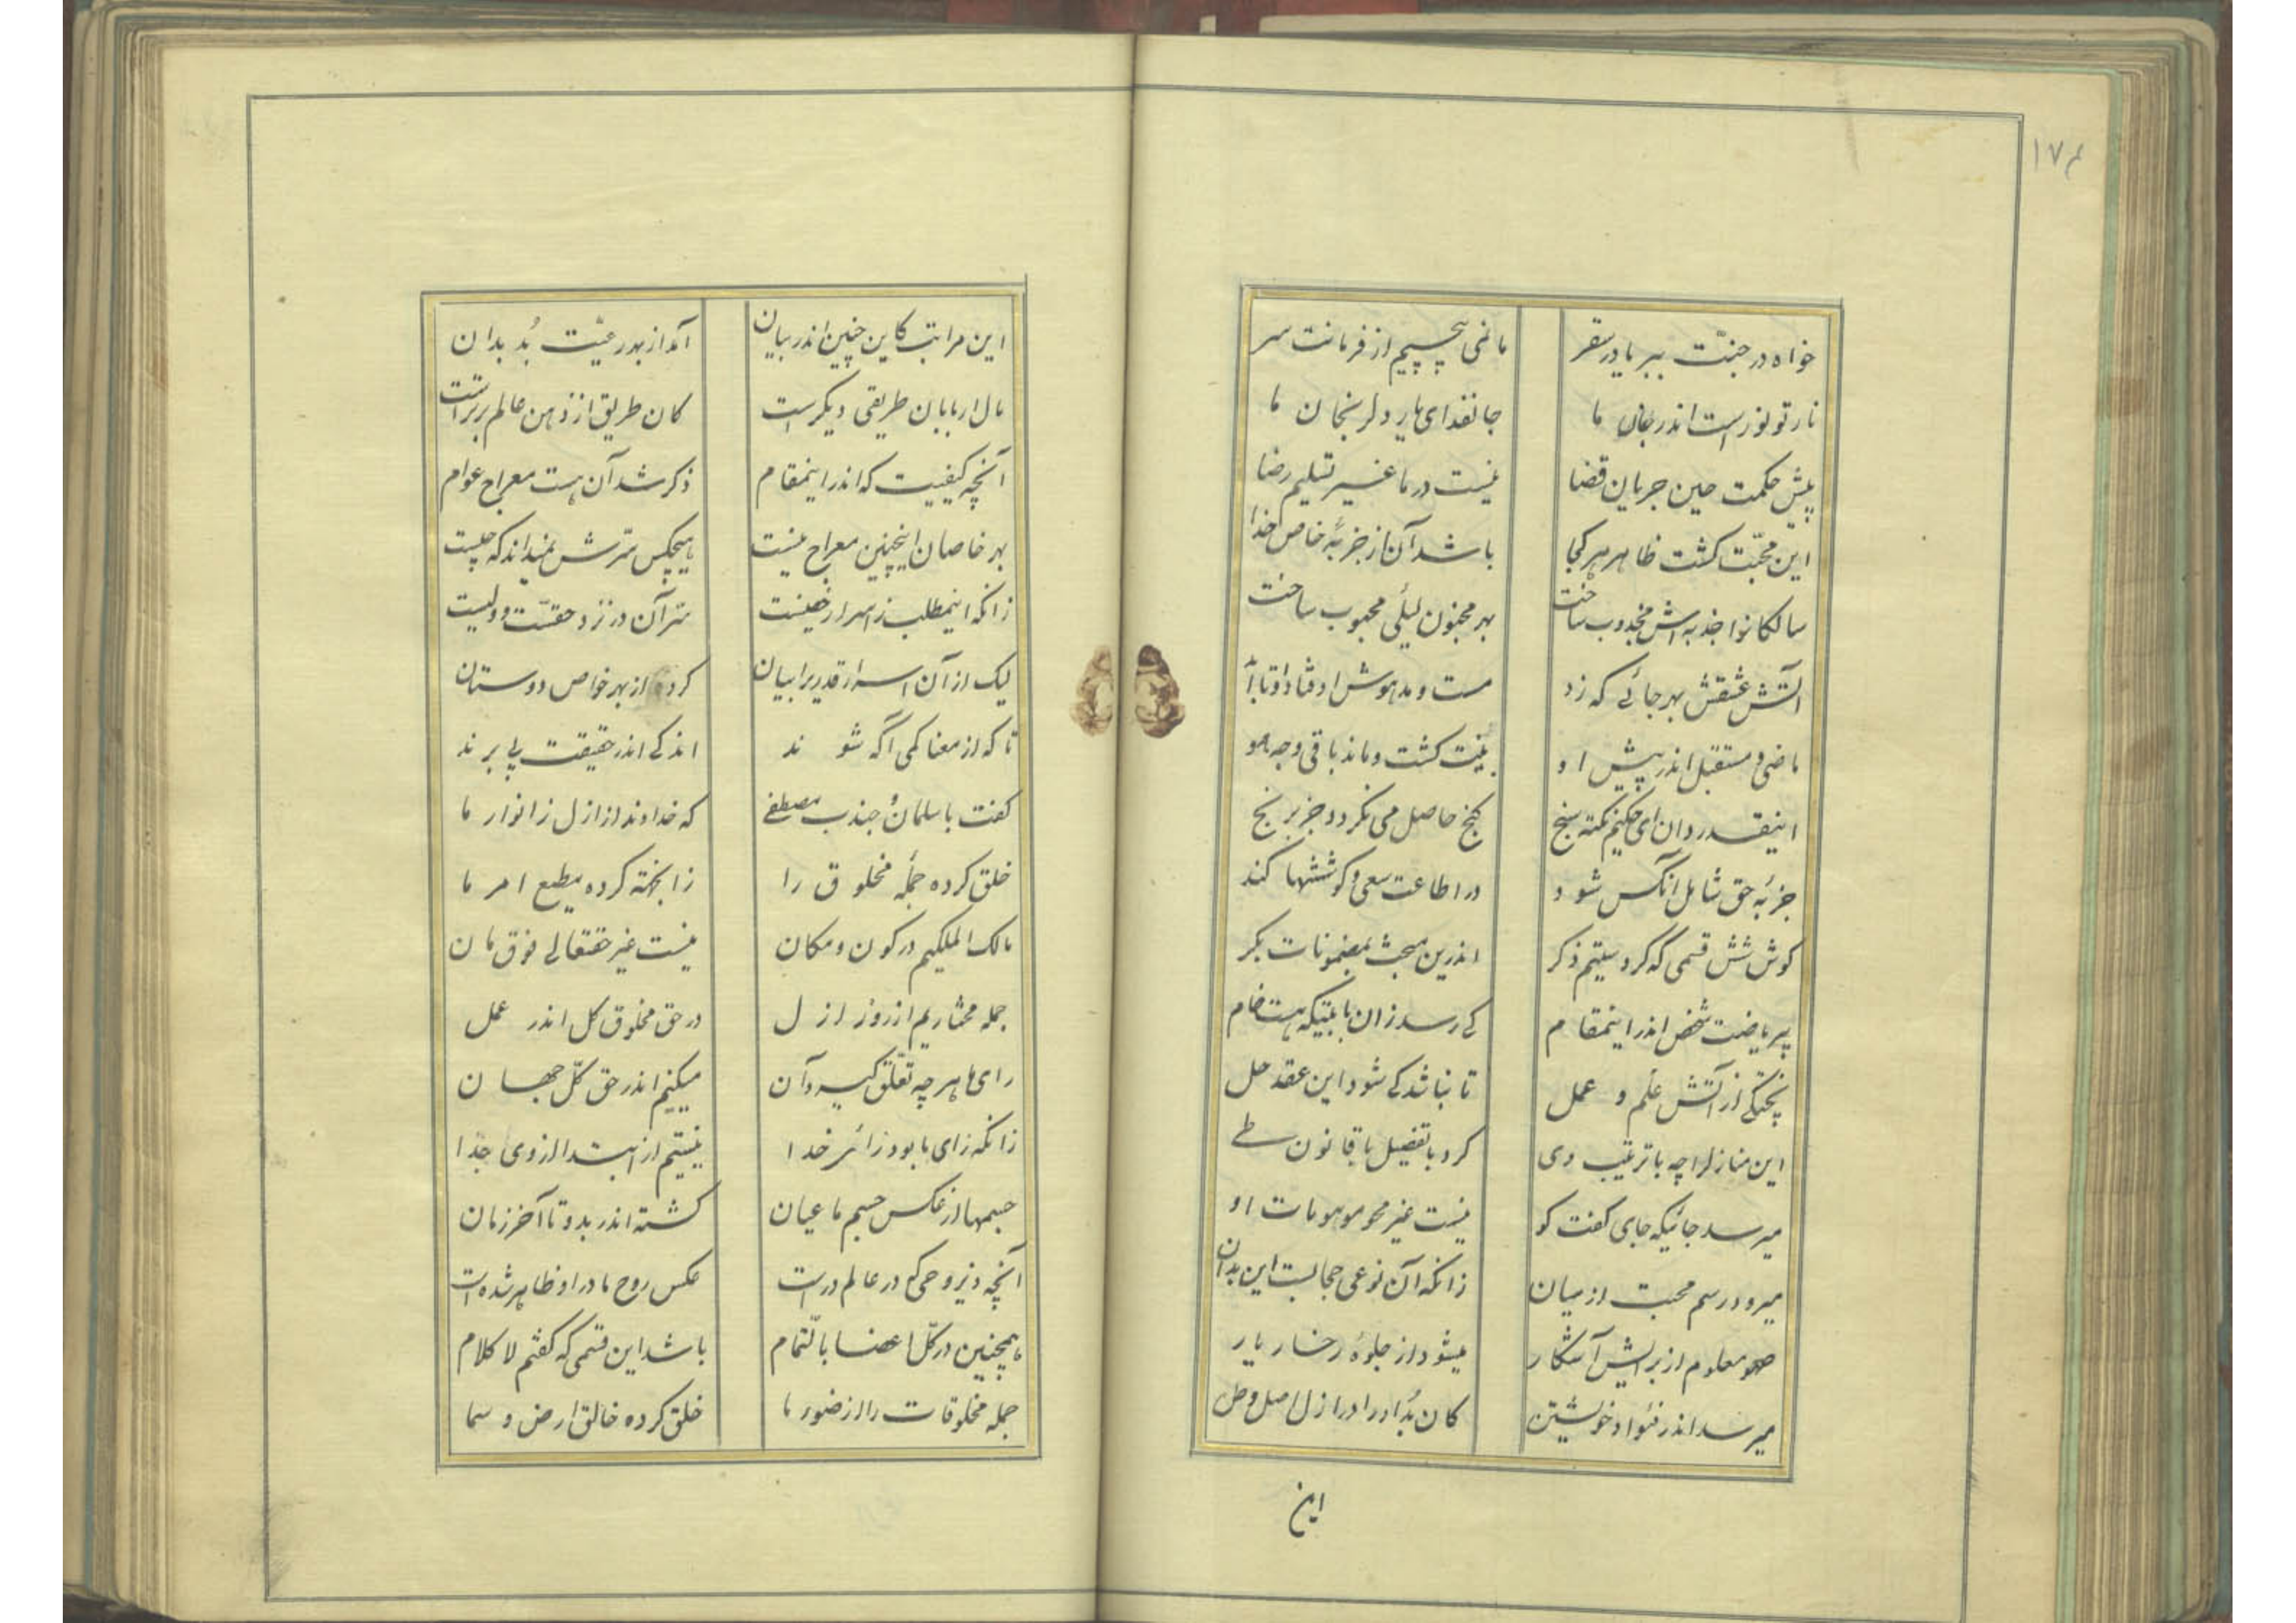 ۱۷۴
خواه در جنّت ببر یا در سقر
ما نمی پیچیم از فرمانت سر
نار تو نور است اندر جان ما
جانفدای یار دلرنجان ما
پیش حکمت حین جریان قضا
نیست در ما غیر تسلیم رضا
این محبّت کشت ظاهر هر کجا
باشد آن از جزبهٔ خاص خدا
سالکانرا جذبه اش مجذوب ساخت
بهر مجنون لیلئی محبوب ساخت
آتش عشقش بهر جائی که زد
مست و مدهوش اوفتاد او تا ابد
ماضی و مستقبل اندر پیش او
نیست کشت و ماند باقی وجه هو
اینقدر دان ای حکیم نکته سنج
کنج حاصل می نکردد جز برنج
جزبهٔ حق شامل آنکس شود
در اطاعت سعی و کوششها کند
کوشش قسمی که کردستیم ذکر
اندرین مبحث بمضمونات بکر
بیریاضت شخص اندر اینمقام
کی رسد زان بابتیکه هست خام
پختکی از آتش علم و عمل
تا نباشد کی شود این عقد حل
این منازلرا چه با ترتیب وی
کرد با تفصیل با قانون طی
میرسد جائیکه جای کفت کو
نیست غیر محو موهومات او
میرود رسم محبت از میان
زانکه آن نوعی حجابست این بدان
صحو معلوم از برایش آشکار
میشود از جلوهٔ رخسار یار
میرسد اندر فئواد خویشتن
کان بُد او را در ازل اصل وطن
این
این مراتب کاین چنین اندر بیان
آمد از بهر رعیّت بُد بدان
مال اربابان طریقی دیکر است
کان طریق از ذهن عالم برتر است
آنچه کیفیت که اندر اینمقام
ذکر شد آن هست معراج عوام
بهر خاصان اینچنین معراج نیست
هیچکس سّرش نمیداند که چیست
زانکه اینمطلب ز اسرار خفیست
سّر آن در نزد حقسّت و ولیست
لیک از آن اسرار قدریرا بیان
کرد از بهر خواص دوستان
تا که از معنا کمی آگه شوند
اندکی اندر حقیقت پی برند
کفت با سلمانُ جندب مصطفی
که خداوند از ازل ز انوار ما
خلق کرده جملهٔ مخلوق را
زانجهته کرده مطیع امر ما
مالک الملکیم در کون و مکان
نیست غیر حقتعالی فوق مان
جمله مختاریم از روز ازل
در حق مخلوق کل اندر عمل
رای ما هر چه تعلّق کیرد آن
میکنیم اندر حق کلّ جهان
زانکه رای ما بود رائی خدا
نیستیم از ابتدا از وی جدا
جسمها از عکس جسم ما عیان
کشته اندر بدو تا آخر زمان
آنچه ذیروحی که در عالم در است
عکس روح ما در او ظاهر شده است
همچنین در کلّ اعضا بالّتمام
باشد این قسمی که کفتم لا کلام
جمله مخلوقات را از ضنور ما
خلق کرده خالق ارض و سما